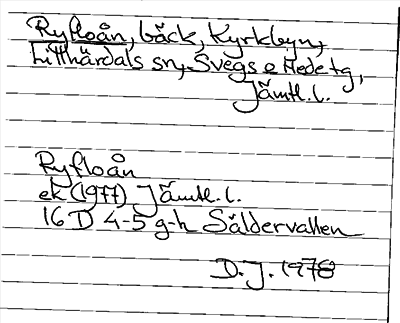 Ryfloån, bäck, Kyrkbyn,
Lillhärdals sn, Svegs o Hede tg,
Jämtl. l.
Ryfloån
ek (1977) Jämtl. l.
16 D 4-5 g-h Säldervallen
D. J. 1978